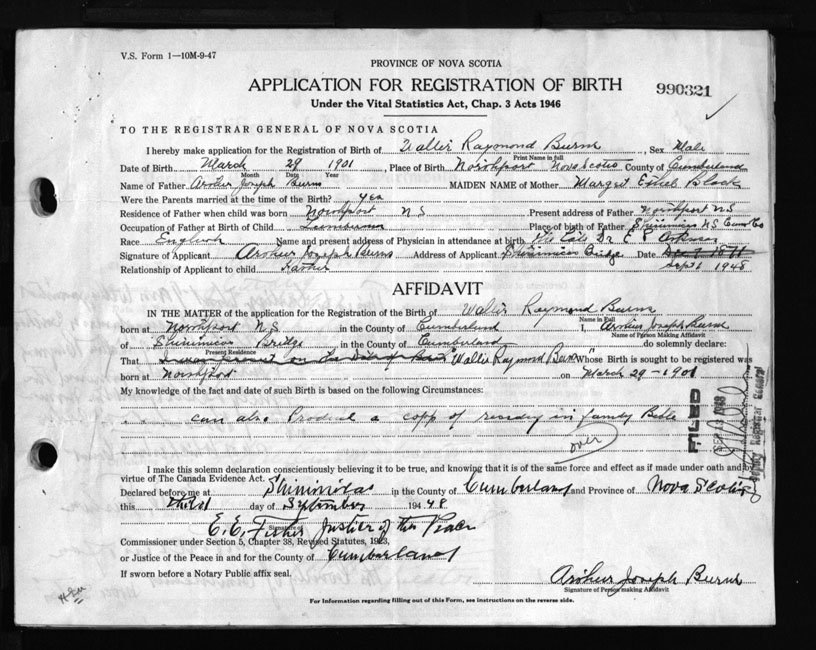 V.S. Form 1—10M-9-47
PROVINCE OF NOVA SCOTIA
APPLICATION FOR REGISTRATION OF BIRTH
990321
Under the Vital Statistics Act, Chap. 3 Acts 1946
TO THE REGISTRAR GENERAL OF NOVA SCOTIA
I hereby make application for the Registration of Birth of Walter Raymond Burns, Sex Male
Print Name in full
Date of Birth March 29 1901, Place of Birth Northport Nova Scotia County of Cumberland
Month Day Year
Name of Father Arthur Joseph Burns MAIDEN NAME of Mother Margret Black
Were the Parents married at the time of the Birth? yes
Residence of Father when child was born Northport NS Present address of Father Northport NS
Occupation of Father at Birth of Child Lumberman Place of birth of Father Shinimicas NS Cum Co
Race English Name and present address of Physician in attendance at birth Dr C
Signature of Applicant Arthur Joseph Burns Address of Applicant Shinimicas Bridge Date
Relationship of Applicant to child Father Sept 1 1948
AFFIDAVIT
IN THE MATTER of the application for the Registration of the Birth of Walter Raymond Burns
Name in Full
born at Northport N.S in the County of Cumberland I, Arthur Joseph Burns
Name of Person Making Affidavit
of Shinimicas Bridge in the County of Cumberland do solemnly declare:
Present Residence
That Walter Raymond Burns Whose Birth is sought to be registered was
born at Northport on March 29-1901
My knowledge of the fact and date of such Birth is based on the following Circumstances:
can also a copy of in family Bible
over
FILED
1948
Deputy Registrar General
I make this solemn declaration conscientiously believing it to be true, and knowing that it is of the same force and effect as if made under oath and by
virtue of The Canada Evidence Act.
Declared before me at Shinimicas in the County of Cumberland and Province of Nova Scotia
this day of September 1948
E. E. Fisher Justice of the Peace
Signature of
Commissioner under Section 5, Chapter 38, Revised Statutes, 1923,
or Justice of the Peace in and for the County of Cumberland
If sworn before a Notary Public affix seal.
Arthur Joseph Burns
Signature of Person making Affidavit
For Information regarding filling out of this Form, see instructions on the reverse side.